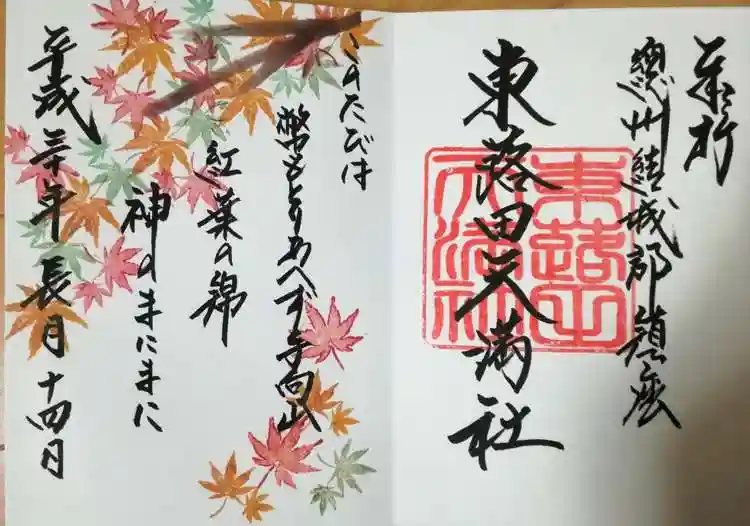 奉拝
總州結城郡鎮座
東路田天満社
東路田天満社
このたびは
幣もとりあへず手向山
紅葉の錦
神のまにまに
平成三十年長月十四日